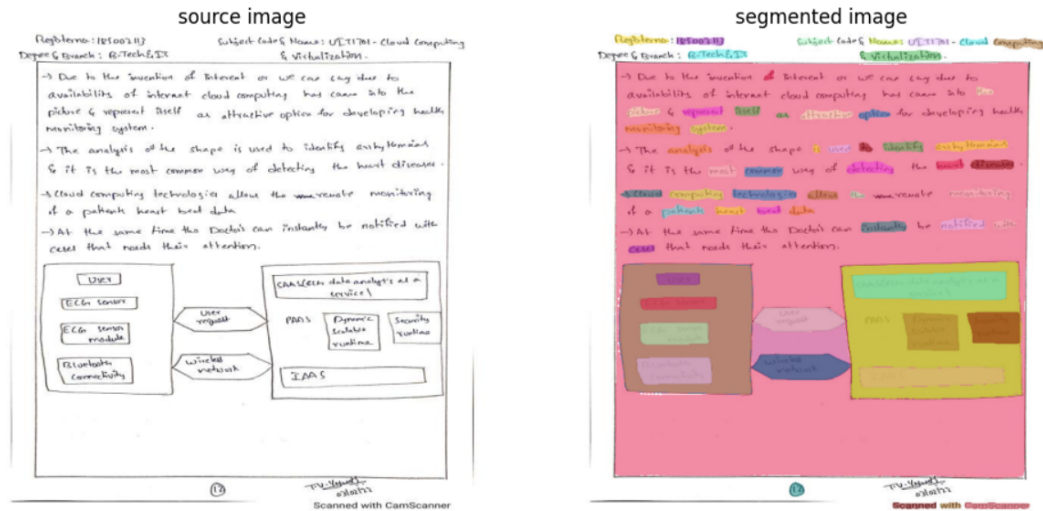 source image
Register no: 185002113
Subject Code & Name: UIT1701 - Cloud Computing
Degree & Branch: B.Tech & IT
& Virtualization.
→ Due to the invention of Interent or we can say due to
availabilities of internet cloud computing has came into the
picture & represent itself as attractive option for developing health
monitoring system.
→ The analysis of the shape is used to identify
& it is the most common way of detecting the heart diseases.
→ Cloud computing technologies allow the remote monitoring
of a patients heart beat data
→ At the same time the Doctors can instantly be notified with
cases that needs their attention.
User
ECG sensor
ECG sensor
module
Bluetooth
connectivity
User
request
Wireless
network
CAAS(ECG data analysis as a
service)
PAAS
Dynamic
Scalable
runtime
Security
runtime
IAAS
12
Scanned with CamScanner
segmented image
Register no: 185002113
Subject Code & Name: UIT1701 - Cloud Computing
Degree & Branch: B.Tech & IT
& Virtualization.
→ Due to the invention of Interent or we can say due to
availabilities of internet cloud computing has came into the
picture & represent itself as attractive option for developing health
monitoring system.
→ The analysis of the shape is used to identify
& it is the most common way of detecting the heart diseases.
→ Cloud computing technologies allow the remote monitoring
of a patients heart beat data
→ At the same time the Doctors can instantly be notified with
cases that needs their attention.
User
ECG sensor
ECG sensor
module
Bluetooth
connectivity
User
request
Wireless
network
CAAS(ECG data analysis as a
service)
PAAS
Dynamic
Scalable
runtime
Security
runtime
IAAS
12
Scanned with CamScanner